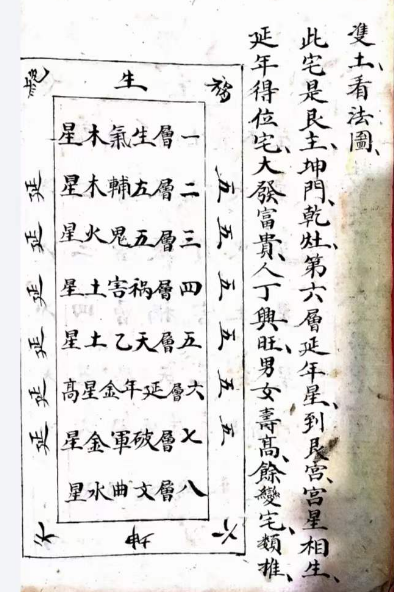 雙土看法圖、
此宅是艮主、坤門、乾灶、第六層延年星、到艮宮、宮星相生、
延年得位宅、大發富貴、人丁興旺、男女壽高、餘變宅、類推、
祸 生
一層生氣木星
二層左輔木星
三層五鬼火星
四層祸害土星
五層天乙土星
六層延年金星高
七層破軍金星
八層文曲水星
五五五五五五
延延延延延延
六 坤